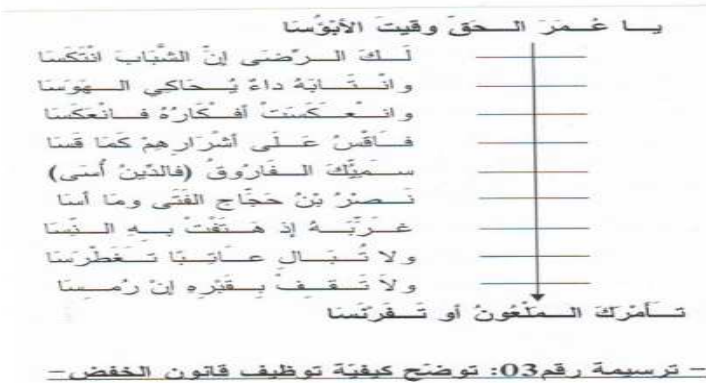 يا عُمَرَ الحَقَّ وقيتَ الأبْؤُسَا
لَكَ الرِّضَى إنَّ الشَّبَابَ انْتَكَسَا
وانْتَابَهُ داءٌ يُحَاكِي الهَوَسَا
وانْعَكَسَتْ أفْكَارُهُ فَانْعَكَسَا
فَاقْسُ عَلَى أشْرَارِهِمْ كَمَا قَسَا
سَمِيُّكَ الفَارُوقُ (فالدِّينُ أُسَى)
نَصْرُ بْنُ حَجَّاجِ الفَتَى ومَا أسَا
غَرَّبَهُ إذ هَتَفْتْ بِهِ النِّسَا
ولا تُبَالِ عاتِبًا تَغَطْرَسَا
ولاَ تَقِفْ بِقَبْرِهِ إنْ رُمِسَا
تَأَمْرَكَ المَلْعُونُ أو تَفَرْنَسَا
– ترسيمة رقم03: توضّح كيفيّة توظيف قانون الخفض–